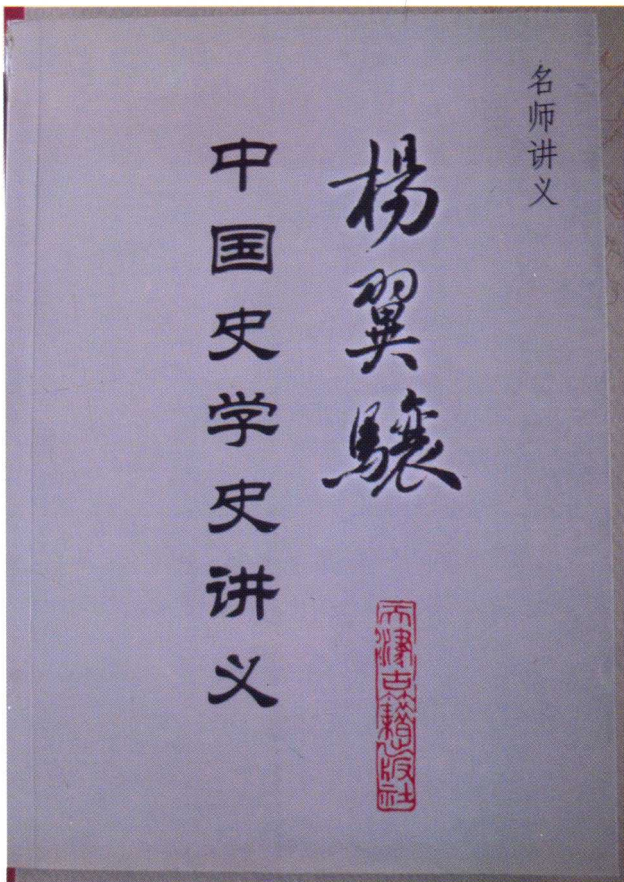 名师讲义
楊翼驤
中国史学史讲义
天津古籍出版社